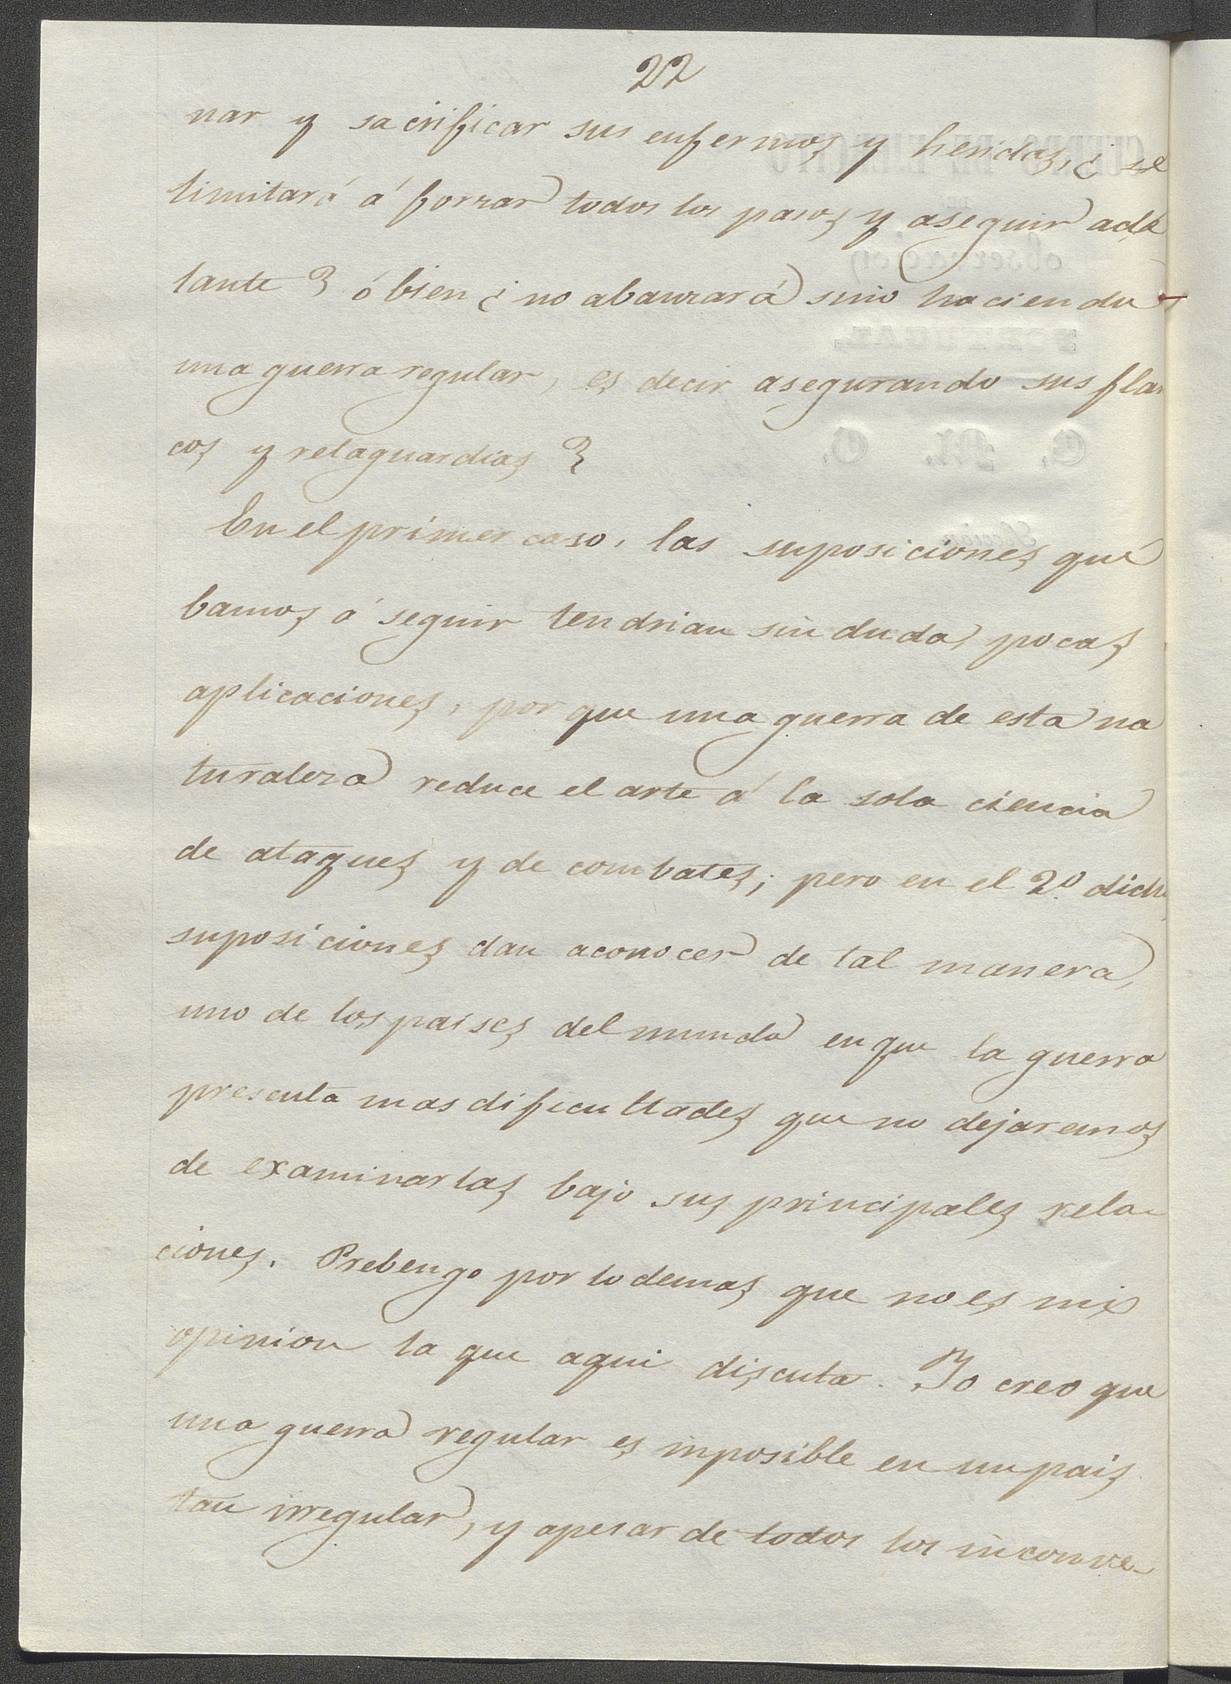 22
nar y sacrificar sus enfermos y heridos, ¿ se
limitará á forzar todos los pasos y aseguir ade
lante? ó bien ¿ no abanzará sino haciendo
una guerra regular, es decir asegurando sus flan
cos y retaguardias?
En el primer caso, las suposiciones que
bamos á seguir tendrian sin duda pocas
aplicaciones, por que una guerra de esta na
turaleza reduce el arte á la sola ciencia
de ataques y de combates; pero en el 2º dichas
suposiciones dan aconocer de tal manera,
uno de los paises del mundo en que la guerra
presenta mas dificultades que no dejaremos
de examinarlas bajo sus principales rela-
ciones. Prebengo por lo demas que no es mi
opinion la que aqui discuta. Yo creo que
una guerra regular es imposible en un pais
tan irregular, y apesar de todos los inconve-